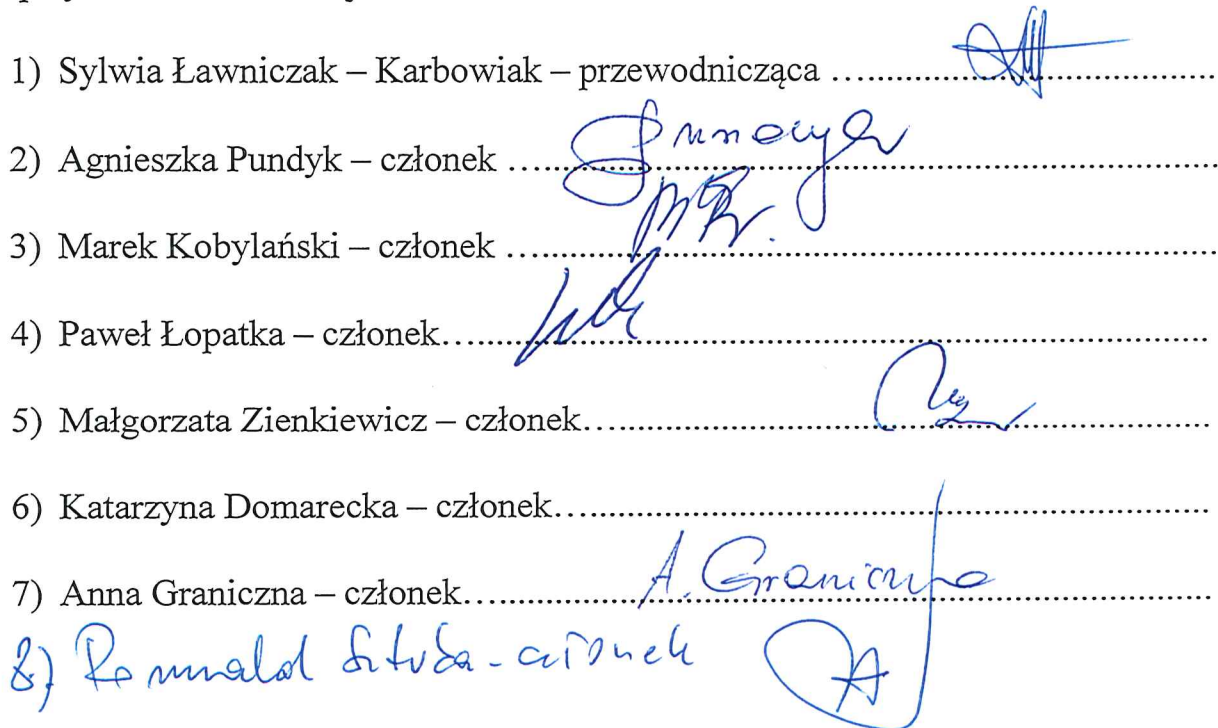 1) Sylwia Ławniczak – Karbowiak – przewodnicząca
2) Agnieszka Pundyk – członek
3) Marek Kobylański – członek
4) Paweł Łopatka – członek
5) Małgorzata Zienkiewicz – członek
6) Katarzyna Domarecka – członek
7) Anna Graniczna – członek A. Graniczna
8) Romuald - członek